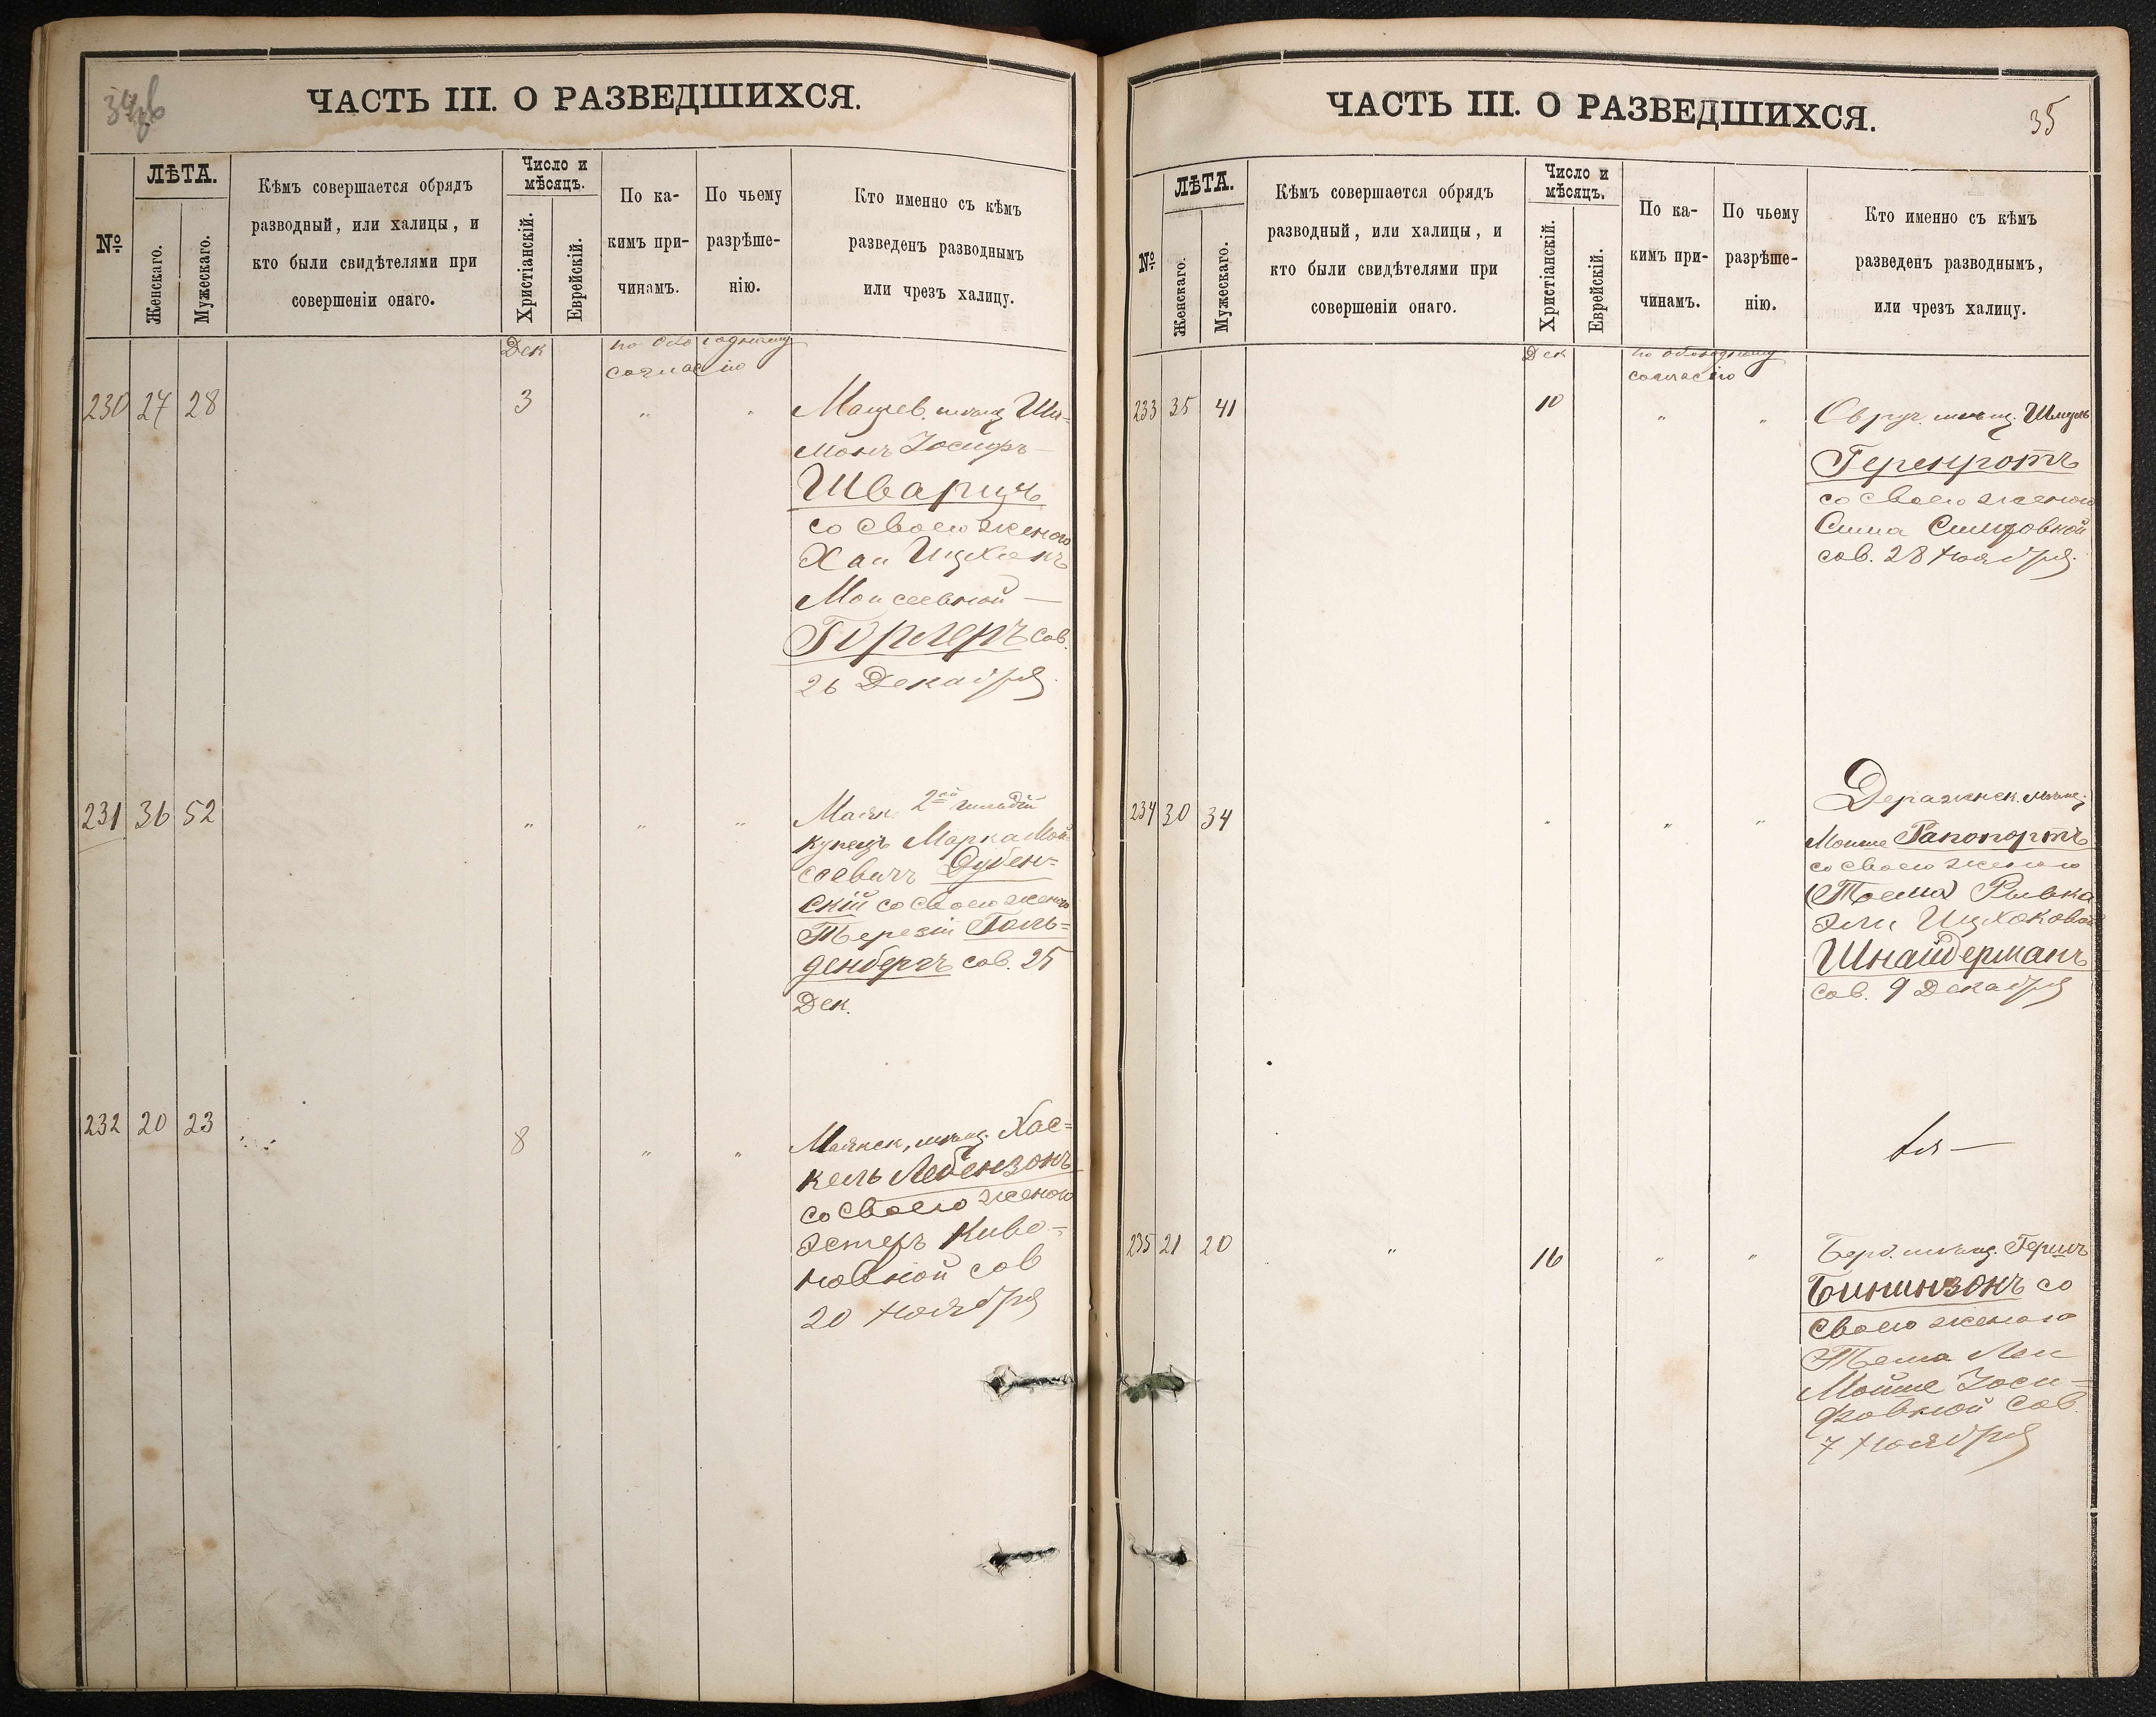 ЧАСТЬ III. О РАЗВЕДШИХСЯ.
№
ЛѢТА.
Женскаго.
Мужескаго.
Кѣмъ совершается обрядъ
разводный, или халицы, и
кто были свидѣтелями при
совершеніи онаго.
Число и
мѣсяцъ.
Христіанскій.
Еврейскій.
По ка-
кимъ при-
чинамъ.
По чьему
разрѣше-
нію.
Кто именно съ кѣмъ
разведенъ разводнымъ
или чрезъ халицу.
Дек по обоюдному
согласію
230 27 28 3 " "
мѣщ. Ши-
монъ Іосифъ
Шварцъ
со своею женою
Хаи
Моисеевной
сов.
26 Декабря
231 36 52 " " "
2ой гильдіи
купецъ Марка Мой-
сеевичъ Дубен=
скій со своею женою
Терезіи Голь=
денбергъ сов. 25
Дек.
232 20 23 8 " "
мѣщ. Хас=
кель Лебензонъ
со своею женою
Эстеръ Киво=
новной сов
20 Ноября
ЧАСТЬ III. О РАЗВЕДШИХСЯ.
35
№
ЛѢТА.
Женскаго.
Мужескаго.
Кѣмъ совершается обрядъ
разводный, или халицы, и
кто были свидѣтелями при
совершеніи онаго.
Число и
мѣсяцъ.
Христіанскій.
Еврейскій.
По ка-
кимъ при-
чинамъ.
По чьему
разрѣше-
нію.
Кто именно съ кѣмъ
разведенъ разводнымъ,
или чрезъ халицу.
Дек по обоюдному
согласію
233 35 41 10 " "
Овруч. мѣщ. Шмуль
Геренротъ
со своею женою
Сима
сов. 28 Ноября
234 30 34 " " "
Деражнск. мѣщ.
Мошие Рапопортъ
со своею женою
Рывка
Эли Ицхоковой
Шнайдерманъ
сов. 9 Декабря
235 21 20 " 16 " "
Берд. мѣщ. Гершъ
Бининзонъ со
своею женою
Леи
Мойше Іоси=
фовной сов.
7 Ноября